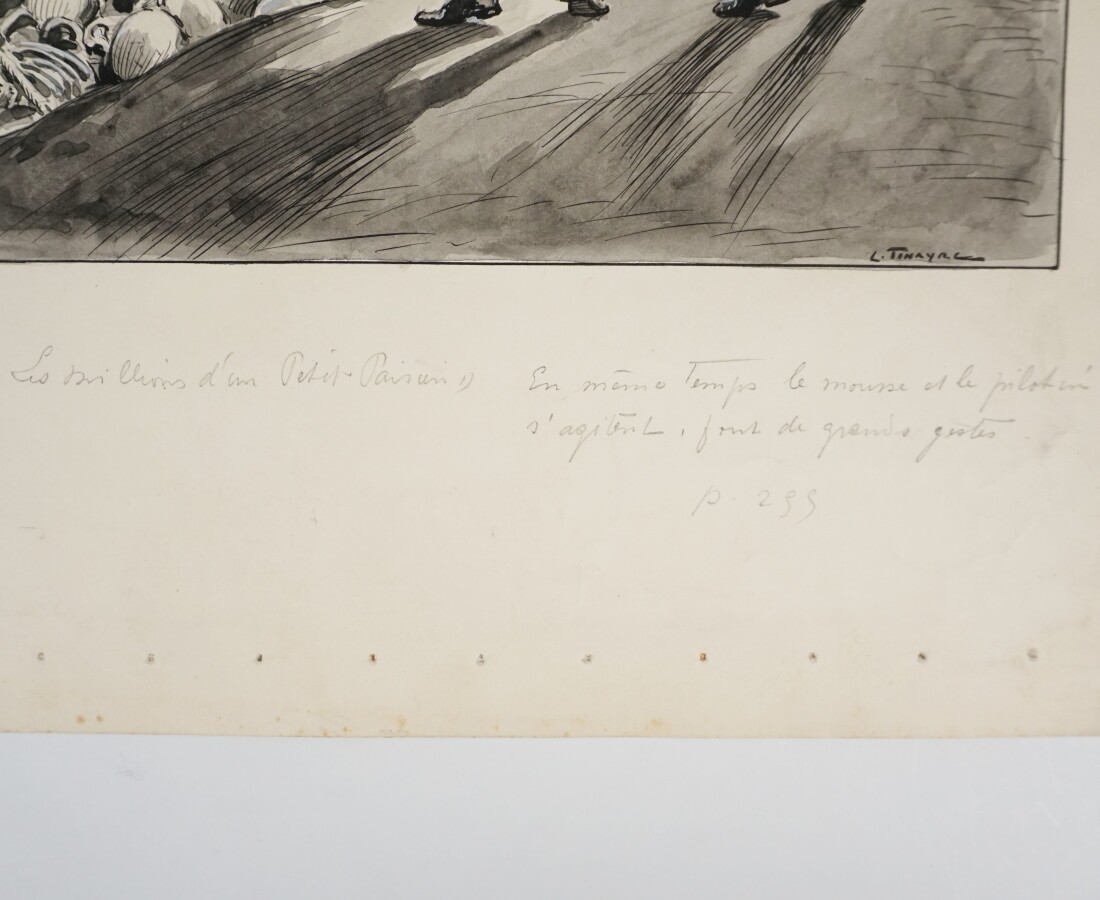 L. TINAYRE
Les millions d'un Petit Parisien »
En même Temps le mousse et le pilotin
s'agitent, font de grands gestes.
p. 299